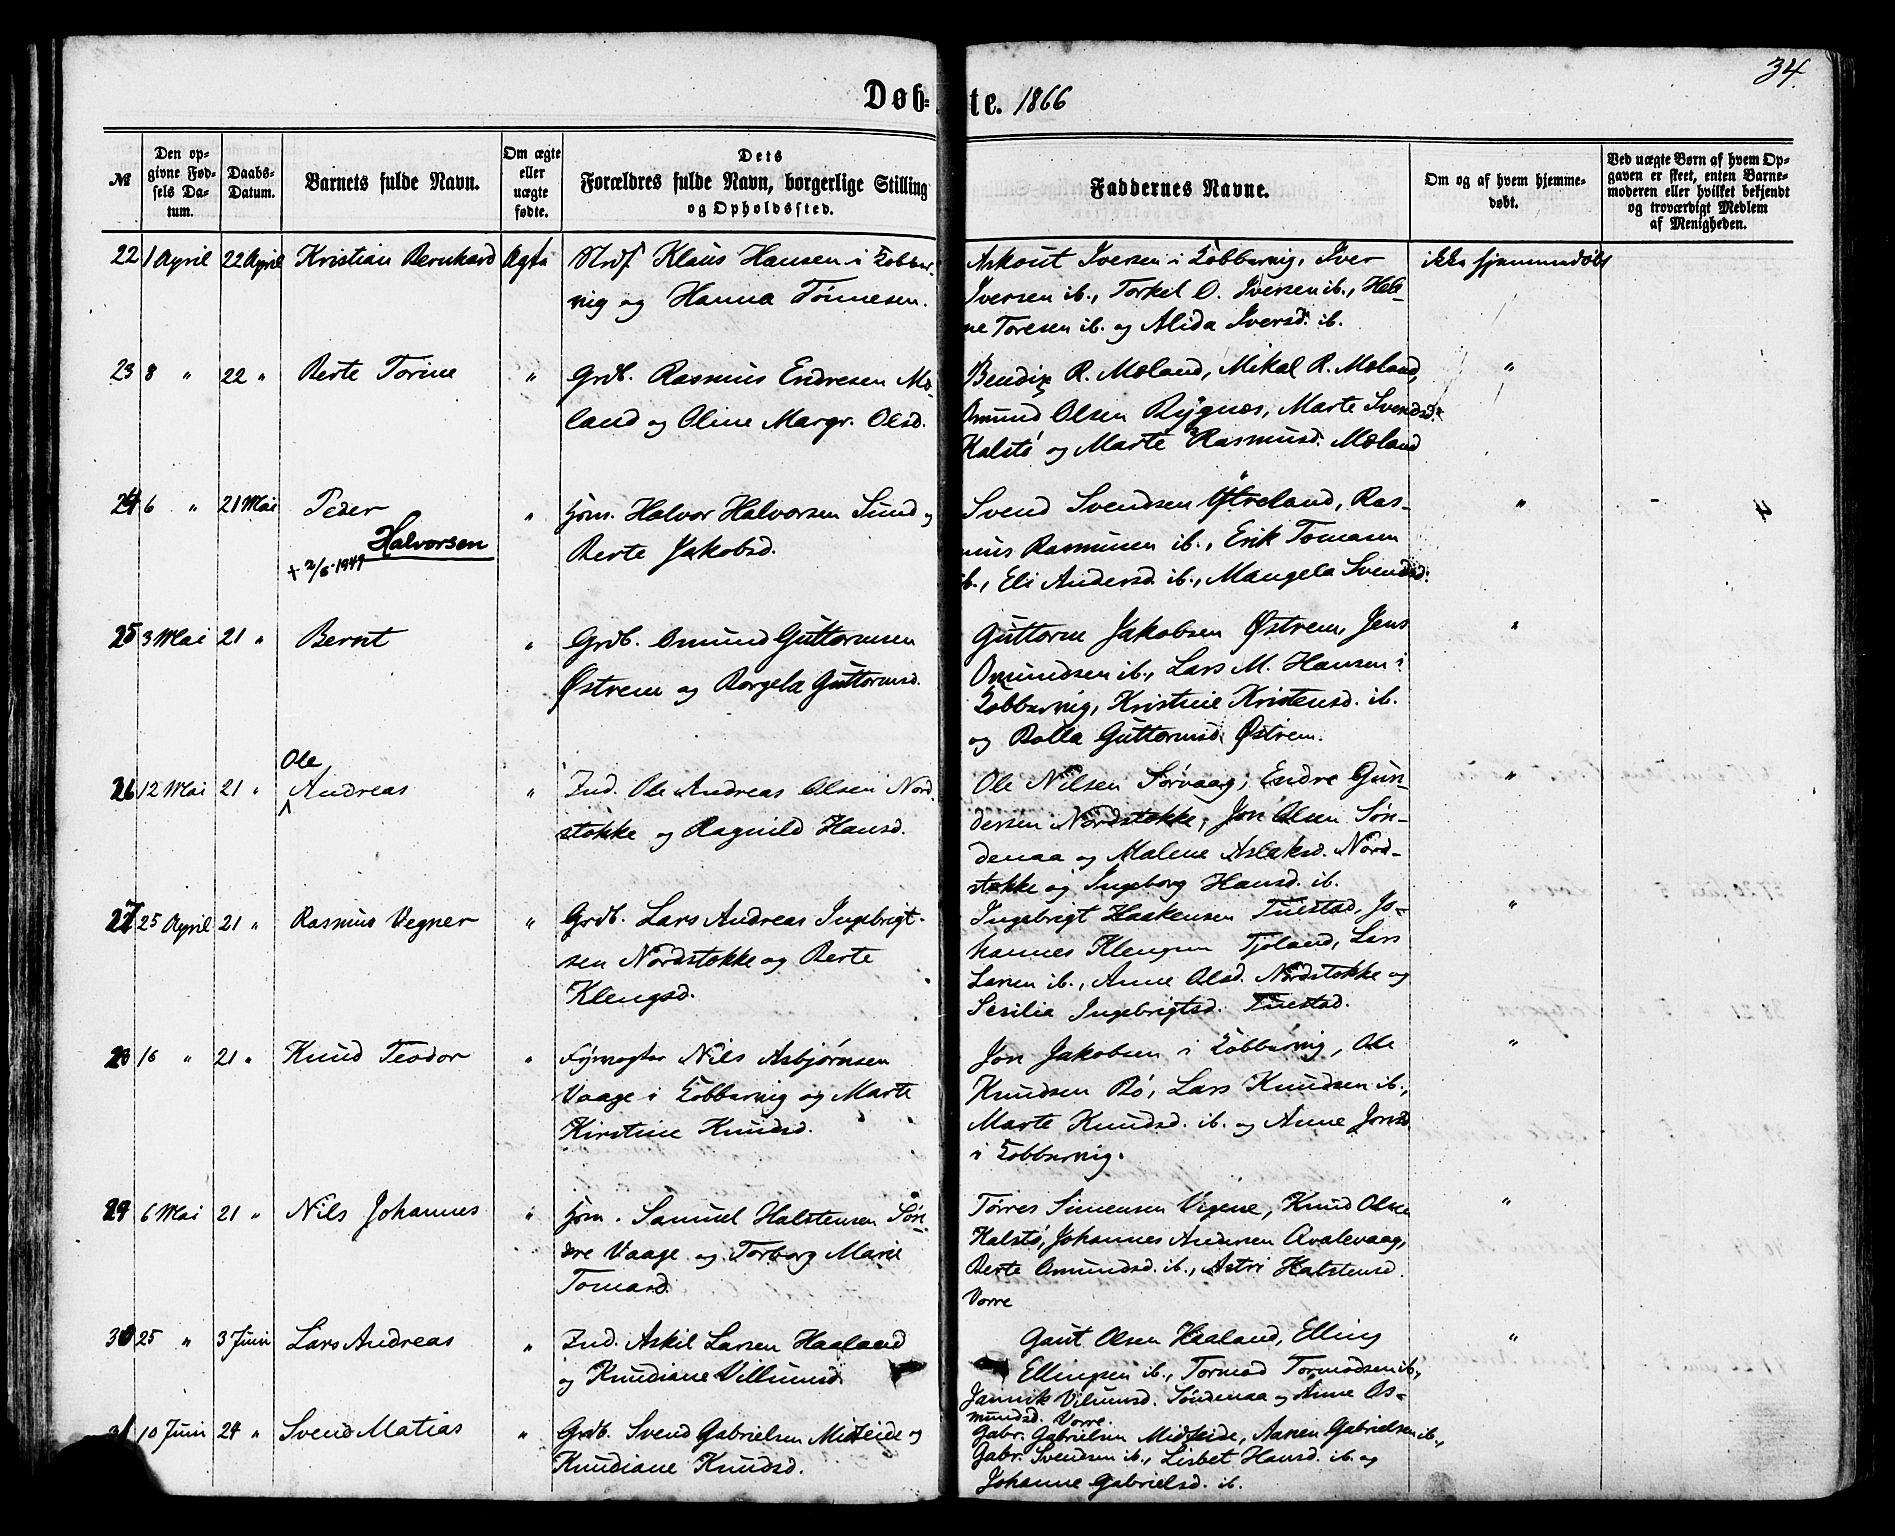 34.
Døbte. 1866
№
Den opgivne Fødsels Datum.
Daabs-Datum.
Barnets fulde Navn.
Om ægte eller uægte fødte.
Dets Forældres fulde Navn, borgerlige Stilling og Opholdssted.
Faddernes Navne.
Om og af hvem hjemmedøbt.
Ved uægte Børn af hvem Opgaven er skeet, enten Barnemoderen eller hvilket bekjendt og troværdigt Medlem af Menigheden.
22 1 April 22 April Kristian Bernhard Ægte
Klaus Hansen i Kobber-
vig og Hanna Tönnesen.
Askout Iversen i Kobbervig, Iver
Iversen ib., Torkel O. Iversen ib., Hele-
ne Toresen ib. og Alida Iversd. ib.
ikke hjemmedøbt
23 8 " 22 " Berte Torine "
Grdb. Rasmus Endresen Mæ-
land og Oline Margr. Olsd.
Bendix R. Mæland, Mikal R. Mæland,
Omund Olsen Rygnæs, Marte Svendsd.
Kalstö og Marte Rasmusd. Mæland
"
24 6 " 21 Mai Peder "
Halvorsen
+ 2/6-1949
Hsm. Halvor Halvorsen Sund og
Berte Jakobsd.
Svend Svendsen Østreland, Ras-
mus Rasmusen ib., Erik Tomasen
ib., Eli Andersd. ib., Mangela Svendsd.
" - 4
25 3 Mai 21 " Bernt "
Grdb. Omund Guttormsen
Østrem og Borgela Guttormsd.
Guttorm Jakobsen Østrem, Jens
Omundsen ib., Lars M. Hansen i
Kobbervig, Kristine Kristensd. ib.
og Bolla Guttormsd. Østrem.
"
26 12 Mai 21 " Ole Andreas "
Ind. Ole Andreas Olsen Nord-
stokke og Ragnild Hansd.
Ole Nilsen Sørvaag, Endre Gun-
dersen Nordstokke, Jon Olsen Søn-
denaa og Malene Aslaksd. Nord-
stokke og Ingeborg Hansd. ib.
"
27 25 April 21 " Rasmus Vegner "
Grdb. Lars Andreas Ingebrigt-
sen Nordstokke og Berte
Klengsd.
Ingebrigt Haakensen Tuestad, Jo-
hannes Klengsen Tjöland, Lars
Larsen ib., Anne Olsd. Nordstokke og
Sesilia Ingebrigtsd. Tuestad.
"
28 16 " 21 " Knud Teodor "
Fyrvogter Nils Asbjørnsen
Vaage i Kobbervig og Marte
Kirstine Knudsd.
Jon Jakobsen i Kobbervig, Ole
Knudsen Bö, Lars Knudsen ib.,
Marte Knudsd. ib. og Anne Jonsd.
i Kobbervig.
"
29 6 Mai 21 " Nils Johannes "
Hsm. Samuel Halstensen Søn-
dre Vaage og Torborg Marie
Tomasd.
Tørres Simensen Vigene, Knud Olsen
Kalstö, Johannes Andersen Avalsvaag,
Berte Omundsd. ib., Astri Halstensd.
Vorre
"
30 25 " 3 Juni Lars Andreas "
Ind. Askil Larsen Haaland
og Knudiane Villumsd.
Gaut Olsen Haaland, Elling
Ellingsen ib., Tormod Tormodsen ib.,
Jannik Vilumsd. Söndenaa og Anne Os-
mundsd. Vorre.
"
31 10 Juni 24 " Svend Matias "
Grdb. Svend Gabrielsen Midteide og
Knudiane Knudsd.
Gabr. Gabrielsen Midteide, Aanen Gabrielsen ib.,
Gabr. Svendsen ib., Lisbet Hansd. ib. og
Johanne Gabrielsd. ib.